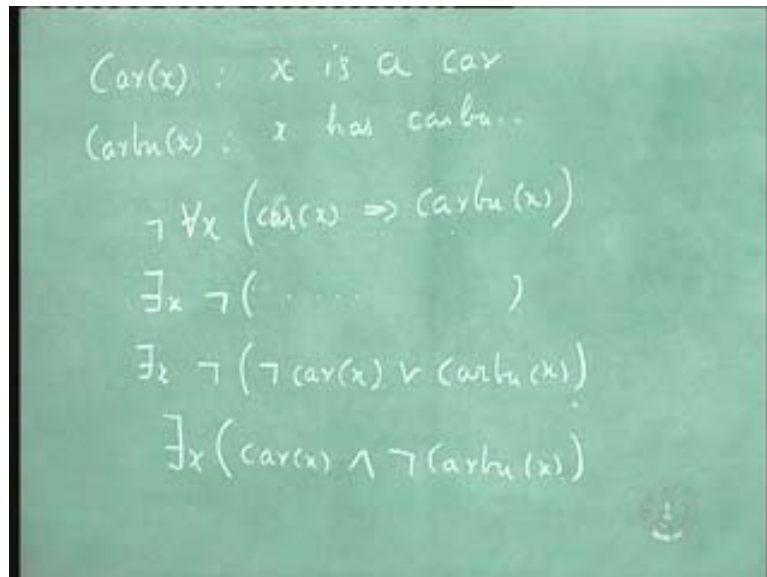 Car(x) : x is a car
Carbu(x) : x has carbu..
¬ ∀x (car(x) => Carbu(x))
∃x ¬( ..... )
∃x ¬ (¬ car(x) ∨ Carbu(x))
∃x (car(x) ∧ ¬ Carbu(x))